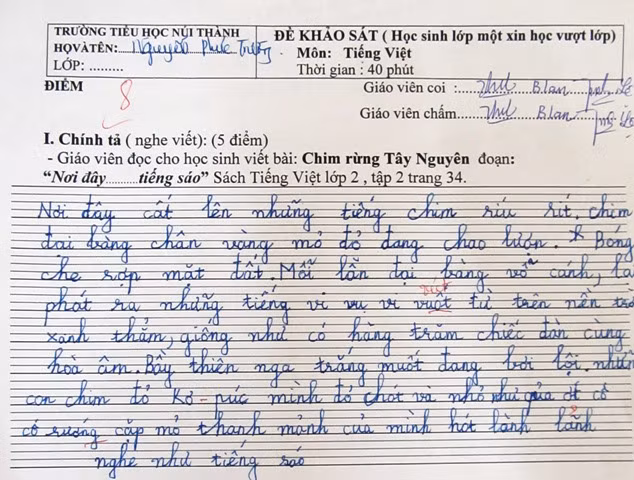 TRƯỜNG TIỂU HỌC NÚI THÀNH
HỌVÀTÊN: Nguyễn Phúc Trường
LỚP: .........
ĐỀ KHẢO SÁT ( Học sinh lớp một xin học vượt lớp)
Môn: Tiếng Việt
Thời gian : 40 phút
ĐIỂM
8
Giáo viên coi :..... Thu B.Lan
Giáo viên chấm..... Thu B.Lan
I. Chính tả ( nghe viết): (5 điểm)
- Giáo viên đọc cho học sinh viết bài: Chim rừng Tây Nguyên đoạn:
“Nơi đây..........tiếng sáo” Sách Tiếng Việt lớp 2 , tập 2 trang 34.
Nơi đây cất lên những tiếng chim ríu rít. chim
đại bàng chân vàng mỏ đỏ đang chao lượn. * Bóng
che rợp mặt đất. Mỗi lần đại bàng vỗ cánh, lại
phát ra những tiếng vi vụ vi vuốt từ trên nền trờ
xanh thẳm, giống như có hàng trăm chiếc đàn cùng
hoà âm. Bầy thiên nga trắng muốt đang bơi lội, nhữn
con chim đỏ Kơ-púc mình đỏ chót và nhỏ như quả ớt cố
cố rướng cặp mỏ thanh mảnh của mình hót lành lãnh
nghe như tiếng sáo